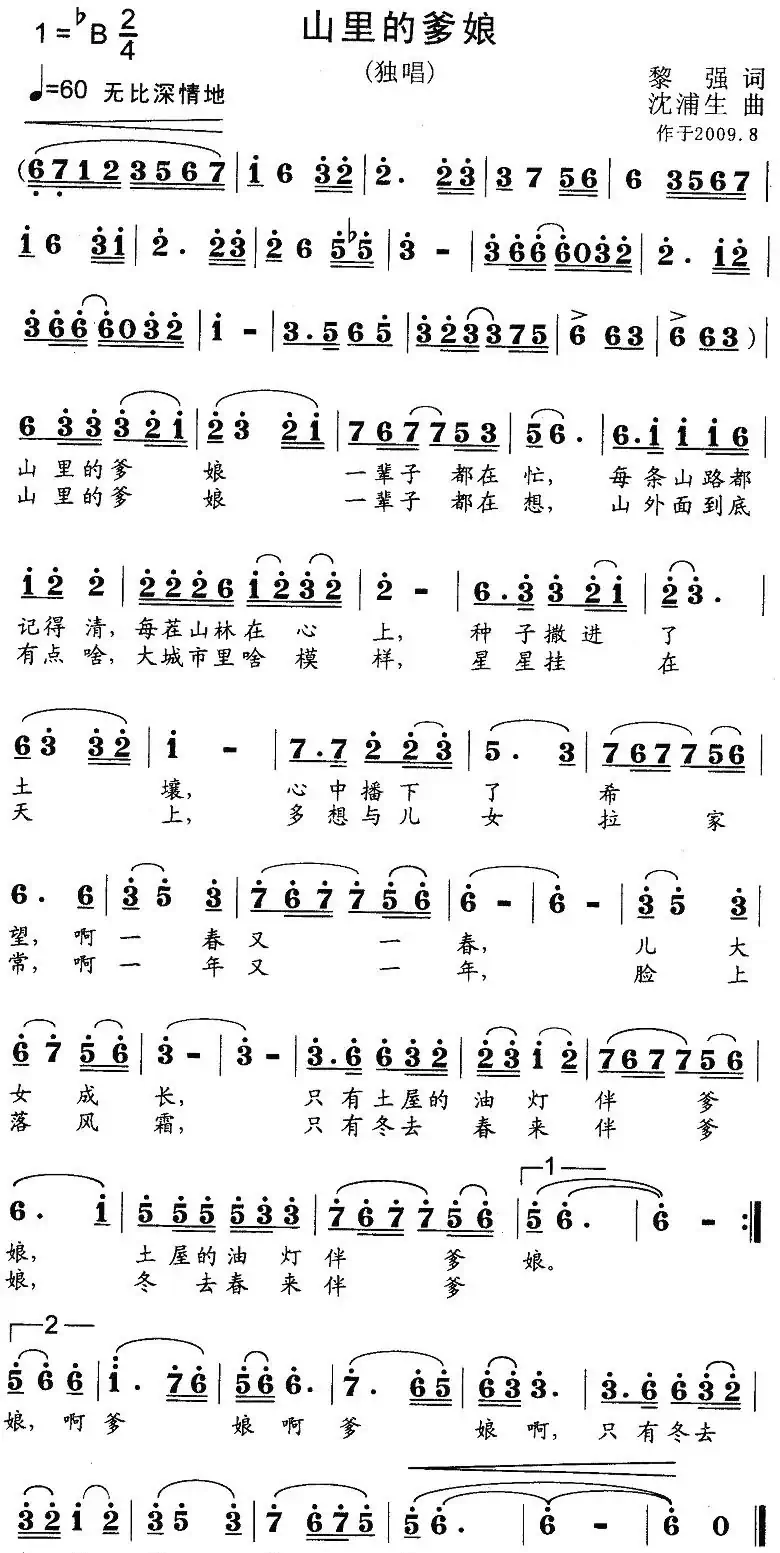 山里的爹娘
1=♭B 2/4
(独唱)
♩=60 无比深情地
黎 强 词
沈浦生 曲
作于2009.8
(6712 3567 | i 6 32 | 2. 23 | 3 7 56 | 6 3567 |
i 6 3i | 2. 23 | 2 6 5♭5 | 3 - | 366 6032 | 2. i2 |
366 6032 | i - | 3.5 6 5 | 323 375 | 6 63 | 6 63 )
6 33 32i | 23 2i | 767 753 | 56. | 6.i i i6 |
山里的爹 娘 一辈子 都在 忙, 每条山路都
山里的爹 娘 一辈子 都在 想, 山外面到底
i2 2 | 2226 i232 | 2 - | 6.3 3 2i | 23. |
记得 清, 每茬山林在 心 上, 种 子撒进 了
有点 啥, 大城市里啥 模 样, 星 星挂 在
63 32 | i - | 7.7 2 23 | 5. 3 | 767 756 |
土 壤, 心中播下 了 希
天 上, 多想与儿 女 拉 家
6. 6 | 35 3 | 767 756 | 6 - | 6 - | 35 3 |
望, 啊 一 春又 一 春, 儿 大
常, 啊 一 年又 一 年, 脸 上
67 56 | 3 - | 3 - | 3.6 632 | 23 i2 | 767 756 |
女 成 长, 只有土屋的 油 灯 伴 爹
落 风 霜, 只有冬去 春 来 伴 爹
6. i | 5 55 533 | 767 756 | 1 5 6. | 6 - :‖
娘, 土屋的油 灯 伴 爹 娘。
娘, 冬 去春 来 伴 爹
2
56 6 | i. 76 | 566. | 7. 65 | 633. | 3.6 632 |
娘, 啊 爹 娘 啊 爹 娘 啊, 只有冬去
32 i2 | 35 3 | 7 675 | 5 6. | 6 - | 6 0 ‖